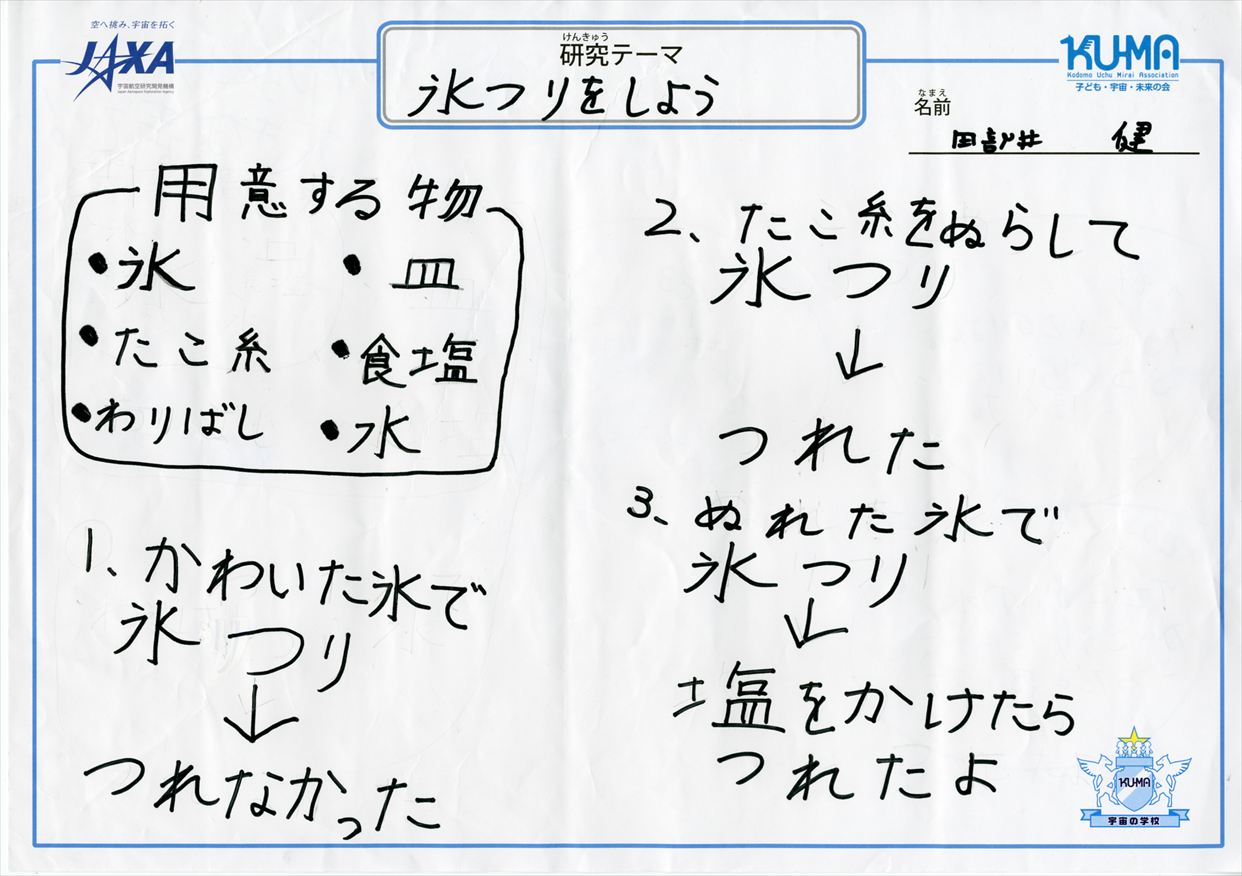 空へ挑み、宇宙を拓く
JAXA
宇宙航空研究開発機構
Japan Aerospace Exploration Agency
けんきゅう
研究テーマ
氷つりをしよう
KU-MA
Kodomo Uchu Mirai Association
子ども・宇宙・未来の会
なまえ
名前
田部井 健
用意する物
・氷
・皿
・たこ糸
・食塩
・わりばし
・水
1、かわいた氷で
氷つり
↓
つれなかった
2、たこ糸をぬらして
氷つり
↓
つれた
3、ぬれた氷で
氷つり
↓
塩をかけたら
つれたよ
KU-MA
宇宙の学校